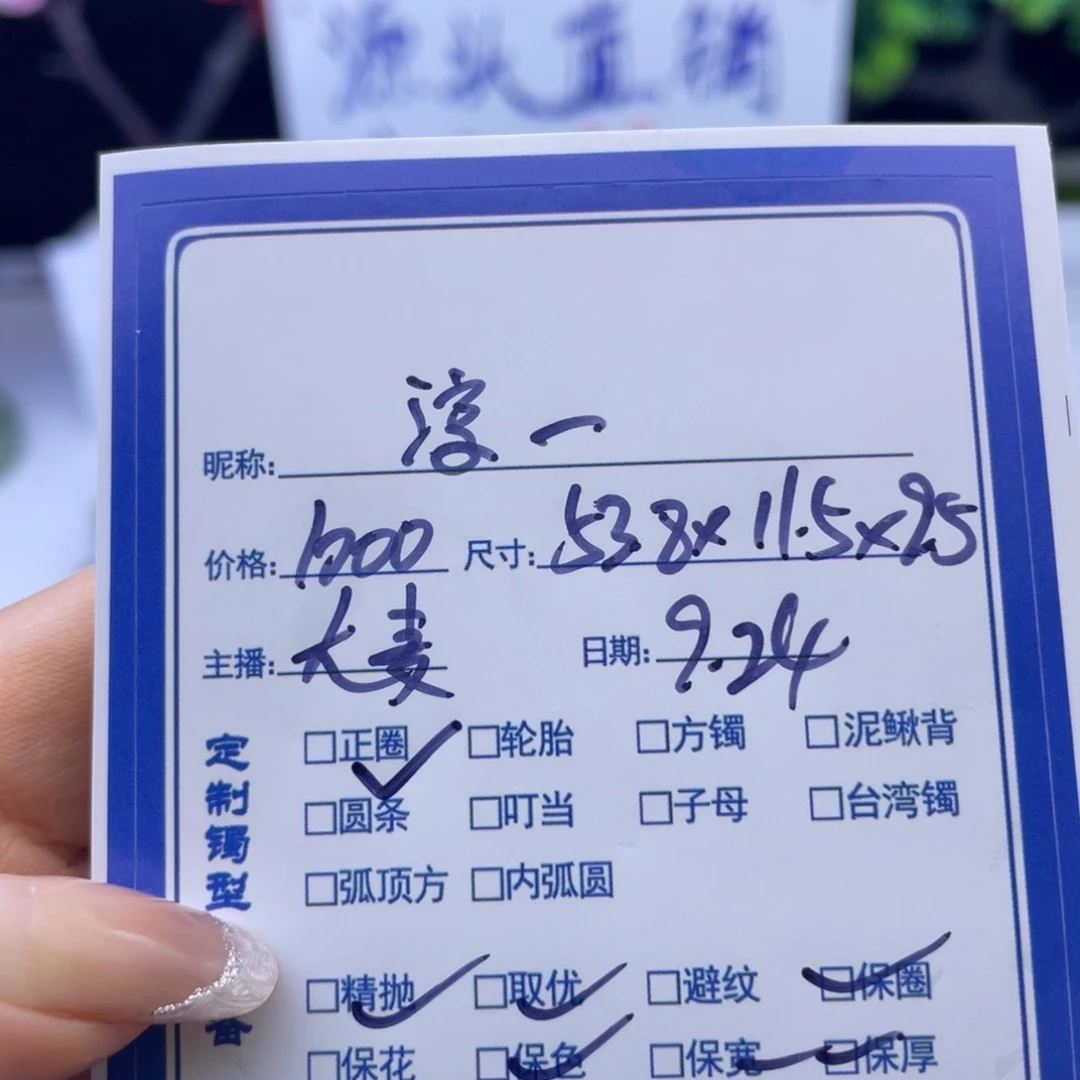 源头直镯
昵称: 淳一
价格: 1000 尺寸: 53.8×11.5×9.5
主播: 大麦 日期: 9.24
定制镯型
□正圈 ✓ □轮胎 □方镯 □泥鳅背
□圆条 □叮当 □子母 □台湾镯
□弧顶方 □内弧圆
备
□精抛 ✓ □取优 ✓ □避纹 □保圈 ✓
□保花 □保色 ✓ □保宽 ✓ □保厚 ✓